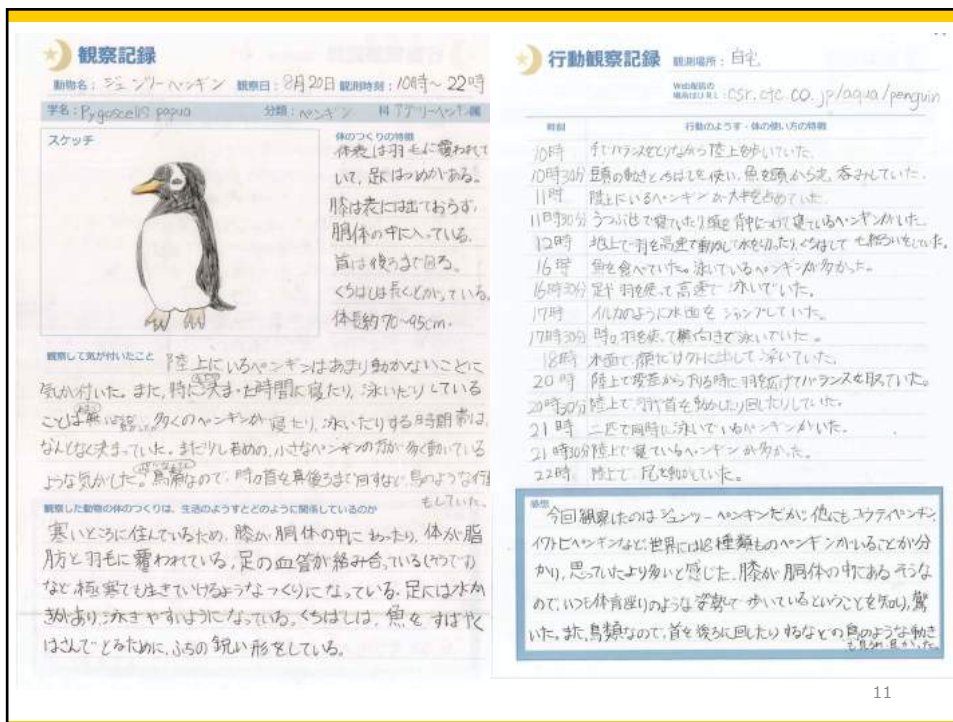 観察記録
動物名：ジェンツーペンギン 観察日：8月20日 観測時刻：10時～22時
学名：Pygoscelis papua 分類：ペンギン 科 アデリーペンギン属
スケッチ
体のつくりの特徴
体表は羽毛に覆われて
いて、足にはつめがある。
膝は表には出ておらず、
胴体の中に入っている。
首は後ろまで回る。
くちばしは長くとがっている。
体長約70～95cm.
観察して気が付いたこと
陸上にいるペンギンはあまり動かないことに
気が付いた。また、特に決まった時間に寝たり、泳いだりしている
ことは無い
多くのペンギンが寝たり、泳いだりする時間帯は、
なんとなく決まっていた。まだ少し若めの、小さなペンギンの方が多く動いている
ような気がした。鳥類なので、時々首を真後ろまで回すなど、鳥のような行動
もしていた。
観察した動物の体のつくりは、生活のようすとどのように関係しているのか
寒いところに住んでいるため、膝が胴体の中にあったり、体が脂
肪と羽毛に覆われている、足の血管が絡み合っている
など、極寒でも生きていけるようなつくりになっている。足には水か
きがあり、泳ぎやすいようになっている。くちばしは、魚をすばやく
はさんでとるために、ふちの鋭い形をしている。
行動観察記録 観測場所：自宅
Web配信の
場合はURL：csr.ctc.co.jp/aqua/penguin
時刻 行動のようす・体の使い方の特徴
10時 手でバランスをとりながら陸上を歩いていた。
10時30分 頭の動きとくちばしを使い、魚を頭から丸呑みしていた。
11時 陸上にいるペンギンが大半を占めていた。
11時30分 うつぶせで寝ていたり頭を背中にのせて寝ているペンギンがいた。
12時 地上で羽を高速で動かして水を切ったり、くちばしで毛繕いをしていた。
16時 魚を食べていた。泳いでいるペンギンが多かった。
16時30分 足や羽を使って高速で泳いでいた。
17時 イルカのように水面をジャンプしていた。
17時30分 時々羽を使って横向きで泳いでいた。
18時 水面で、顔だけ外に出して泳いでいた。
20時 陸上で段差から下りる時に羽を広げてバランスを取っていた。
20時30分 陸上で、羽や首を動かしたり回したりしていた。
21時 二匹で同時に泳いでいるペンギンがいた。
21時30分 陸上で寝ているペンギンが多かった。
22時 陸上で、尾を動かしていた。
感想
今回観察したのはジェンツーペンギンだが、他にもコウテイペンギン、
イワトビペンギンなど、世界には18種類ものペンギンがいることが分
かり、思っていたより多いと感じた。膝が胴体の中にあるそうな
ので、いつも体育座りのような姿勢で歩いているということを知り、驚
いた。また、鳥類なので、首を後ろに回したりするなどの鳥のような動き
も見られ、良かった。
11